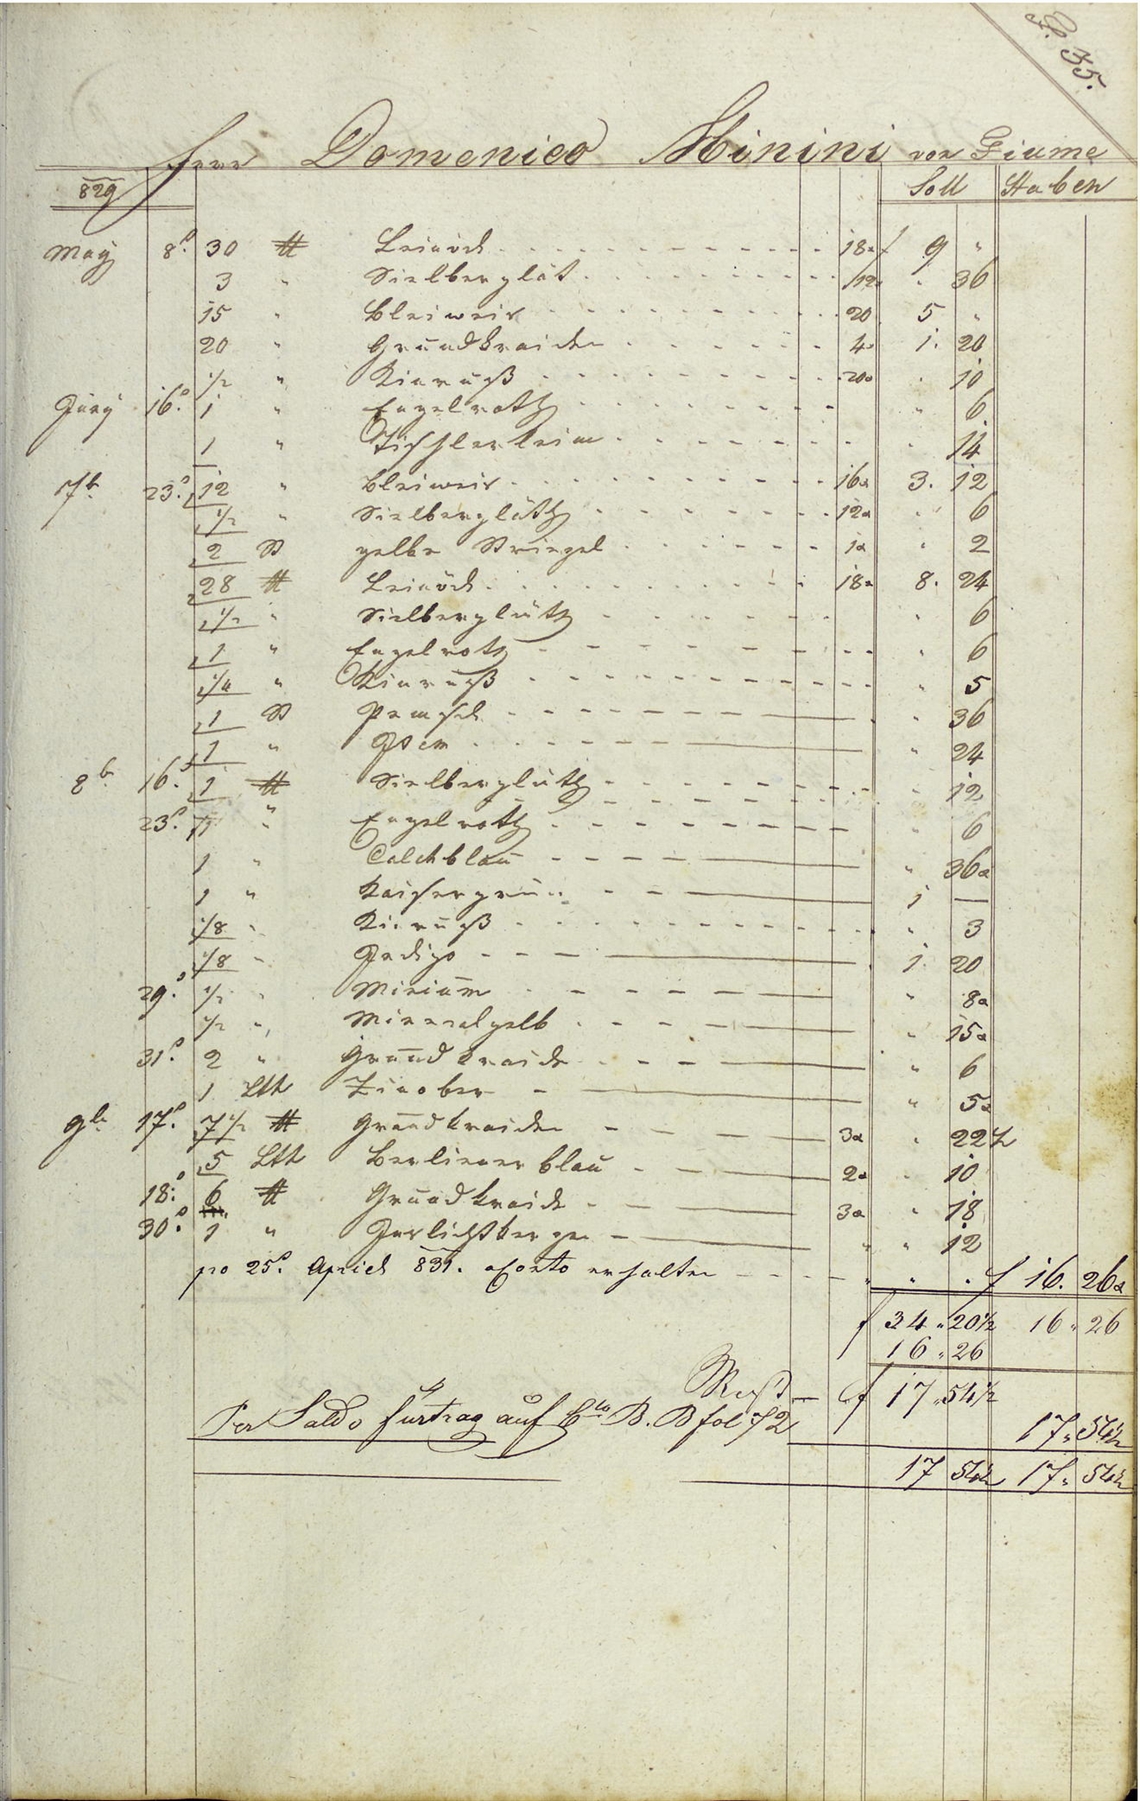 S. 35.
Herr Domenico Minini von Fiume
829 Soll Haben
May 8t. 30 ℔ Leinöel 18x f 9 "
3 " Sielberglät 12x " 36
15 " Bleiweis 20 5 "
20 " Grundkraiden 4x 1. 20
1/2 " Kinruß 20x " 10
Juny 16t. 1 " Engelroth " 6
1 " Tischlerleim " 14
7br 23t. 12 " Bleiweis 16x 3. 12
1/2 " Sielberglätt 12x " 6
2 St gelbe Striegel 1x " 2
28 ℔ Leinöel 18x 8. 24
1/2 " Sielberglätt " 6
1 " Engelroth " 6
1/4 " Kinruß " 5
1 St Pemsel " 36
1 " Item " 24
8br 16t. 1 ℔ Sielberglätt " 12
23t. 1 " Engelroth " 6
1 " Calchblau " 36x
1 " Kaisergrün 1 —
1/8 " Kinruß " 3
1/8 " Indigo 1. 20
29t. 1/2 " Minium " 8x
1/2 " Mineralgelb " 15x
31t. 2 " Grundkraide " 6
1 Lth Zinober " 5x
9br 17t. 7 1/2 ℔ Grundkraiden 3x " 22 1/2
5 Lth Berlienerblau 2x " 10
18t. 6 ℔ Grundkraide 3x " 18
30t. 1 " " " 12
pro 25t. Apriel 831. aConto erhalten " " . f 16. 26x
f 34 " 20 1/2 16 " 26
16 " 26
Rest f 17 " 54 1/2
Per Saldo fürtrag auf Cto B. B fol 72 17 " 54 1/2
17 54 1/2 17 " 54 1/2